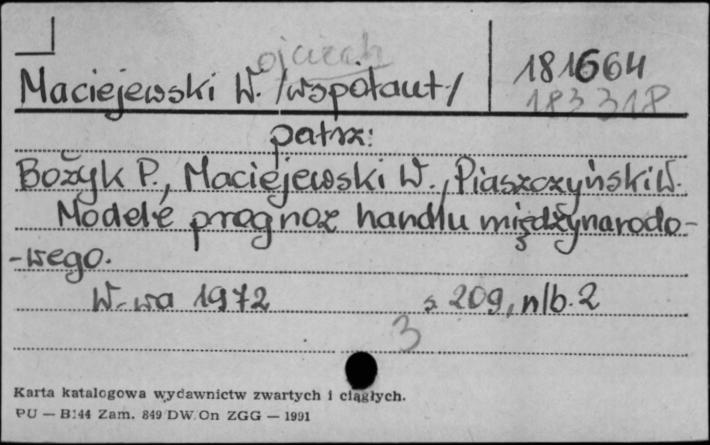 ojciech
Maciejewski W. /współaut/ 181664
183318
patrz:
Bożyk P., Maciejewski W., Piaszczyński W.
Modele prognoz handlu międzynarodo-
-wego.
W-wa 1972 s. 209, nlb. 2
3
Karta katalogowa wydawnictw zwartych i ciągłych.
PU — B:44 Zam. 849 DW. On ZGG — 1991